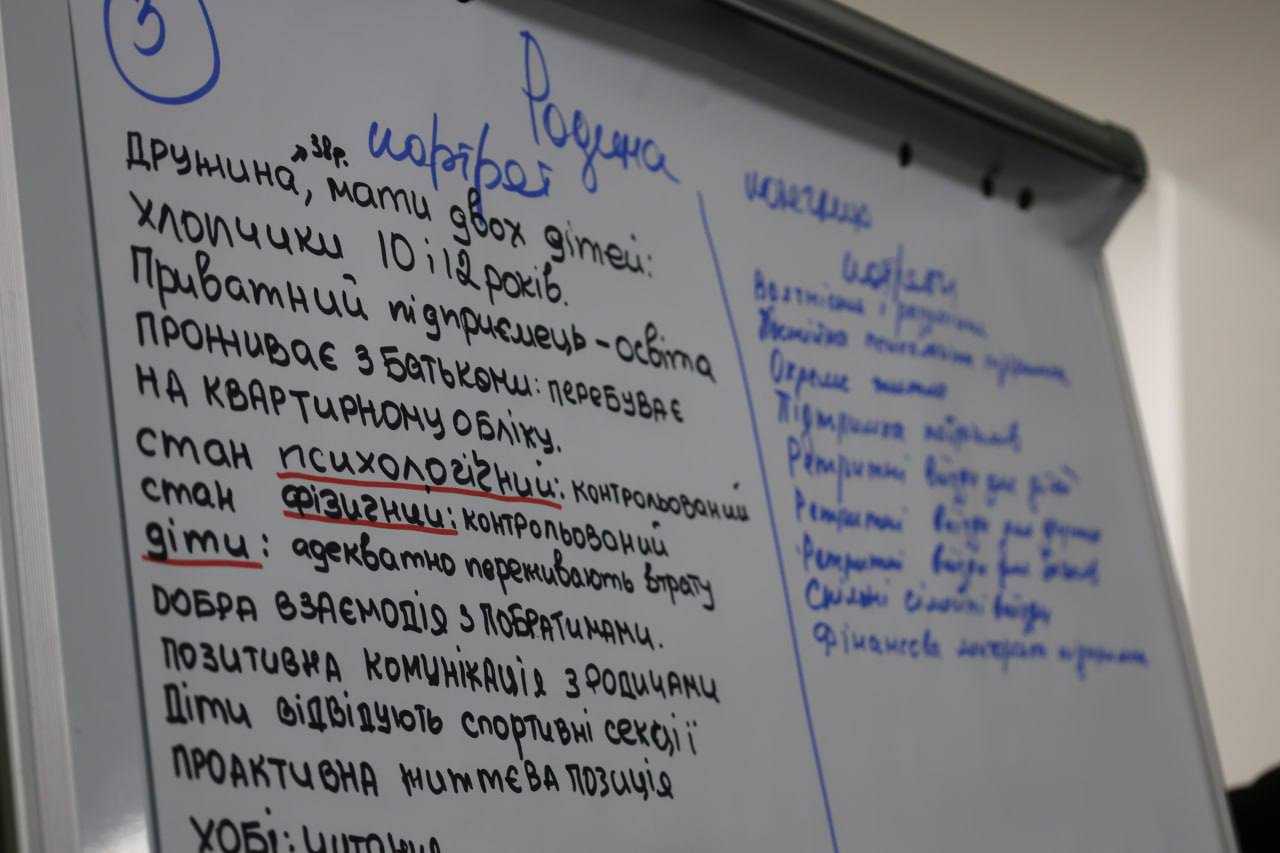 3
Родина
портрет
ДРУЖИНА, → 38р. мати двох дітей:
хлопчики 10 і 12 років.
Приватний підприємець - освіта
ПРОЖИВАЄ З БАТЬКОМИ: перебуває
НА КВАРТИРНОМУ ОБЛІКУ.
стан психологічний: контрольований
стан фізичний: контрольований
діти: адекватно переживають втрату
ДОБРА ВЗАЄМОДІЯ З ПОБРАТИМАМИ.
ПОЗИТИВНА КОМУНІКАЦІЯ З РОДИЧАМИ
Діти відвідують спортивні секції
ПРОАКТИВНА ЖИТТЄВА ПОЗИЦІЯ
ХОБІ: читання
потреби
Окреме житло
Підтримка
Ретритні виїзди для дітей
Ретритні виїзди для
Ретритні виїзди для
Спільні сімейні виїзди
Фінансова